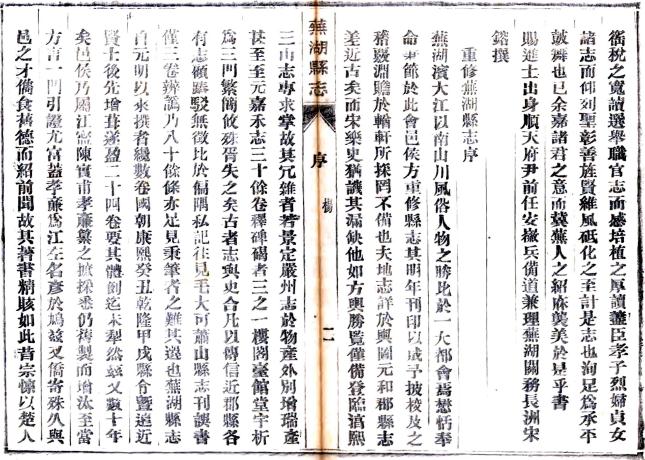 衙稅之寬讀選舉職官志而感培植之厚讀藎臣孝子烈婦貞女
諸志而仰列聖彰善旌賢維風砥化之至計是志也洵足為承平
鼓舞也已余嘉諸君之意而冀蕪人之紹庥襲美於是乎書
賜進士出身順天府尹前任安徽兵備道兼理蕪湖關務長洲宋
鎔撰
重修蕪湖縣志序
蕪湖濱大江以南山川風俗人物之勝比於一大都會焉懋恬奉
命尹節於此會邑侯方重修縣志其明年刊印以成予披梭及之
稽覈淵贍於輶軒所採罔不備也夫地志詳於輿圖元和郡縣志
差近古矣而宋樂史猶譏其漏缺他如方輿勝覽僅備登臨淳熙
三山志專求掌故其冗雜者若景定嚴州志於物產外別增瑞產
甚至至元嘉禾志三十餘卷釋碑碣者三之一樓閣臺館堂宇析
為三門繁簡攸殊胥失之矣古者志與史合凡以傳信近郡縣各
有志顧踳駁無徵比於偏隅私記往見毛大可蕭山縣志刊誤書
僅三卷辨譌乃八十餘條亦足見秉筆者之難其選也蕪湖縣志
自元明以來撰者纔數卷國朝康熙癸丑乾隆甲戌縣令暨遠近
賢士後先增葺遂盈二十四卷要其體例迄未犁然茲又數十年
矣邑侯乃屬江甯陳實甫孝廉纂之摭採悉仍舊製而增汰至當
方言一門引證尤富蓋孝廉為江左名彥於鳩茲又僑寄殊久與
邑之才僑食舊德而紹前聞故其著書精賅如此昔宗懍以楚人
蕪湖縣志
序
楊
二